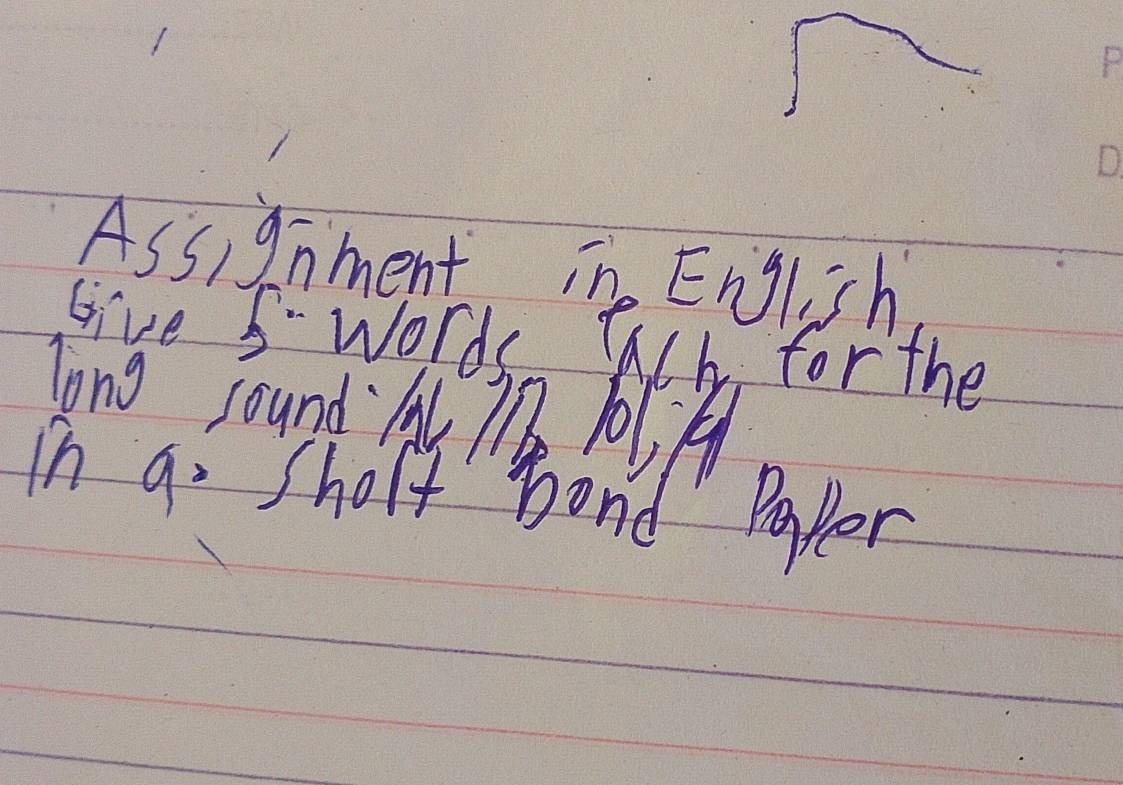 Assignment in English
Give 5 words each for the
long sound /a/, /i/, /o/,
in a short bond Paper
P
D